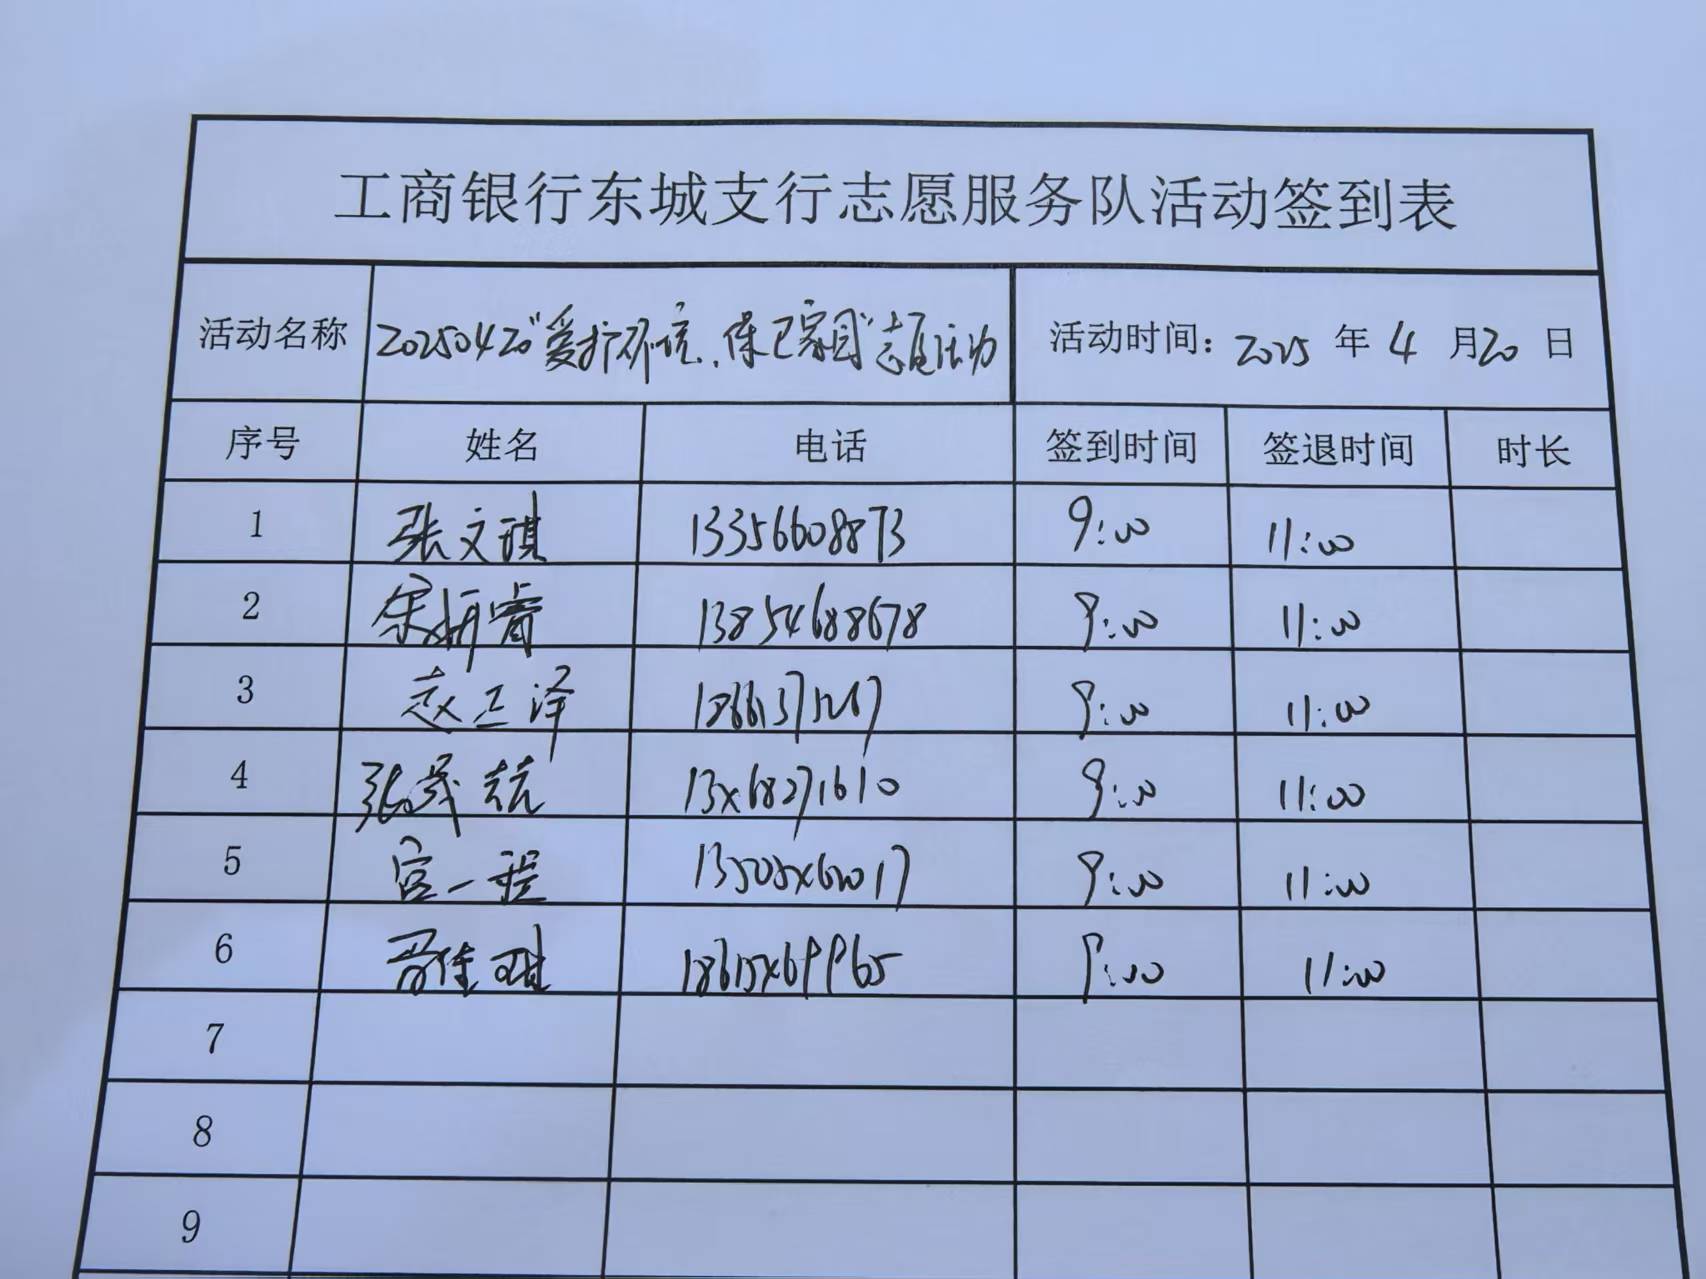 工商银行东城支行志愿服务队活动签到表
活动名称 20250420"爱护环境、保卫家园"志愿活动 活动时间: 2025 年 4 月 20 日
序号 姓名 电话 签到时间 签退时间 时长
1 张文琪 13356608873 9:00 11:00
2 13854688678 9:00 11:00
3 赵正泽 9:00 11:00
4 9:00 11:00
5 宫一程 9:00 11:00
6 9:00 11:00
7
8
9